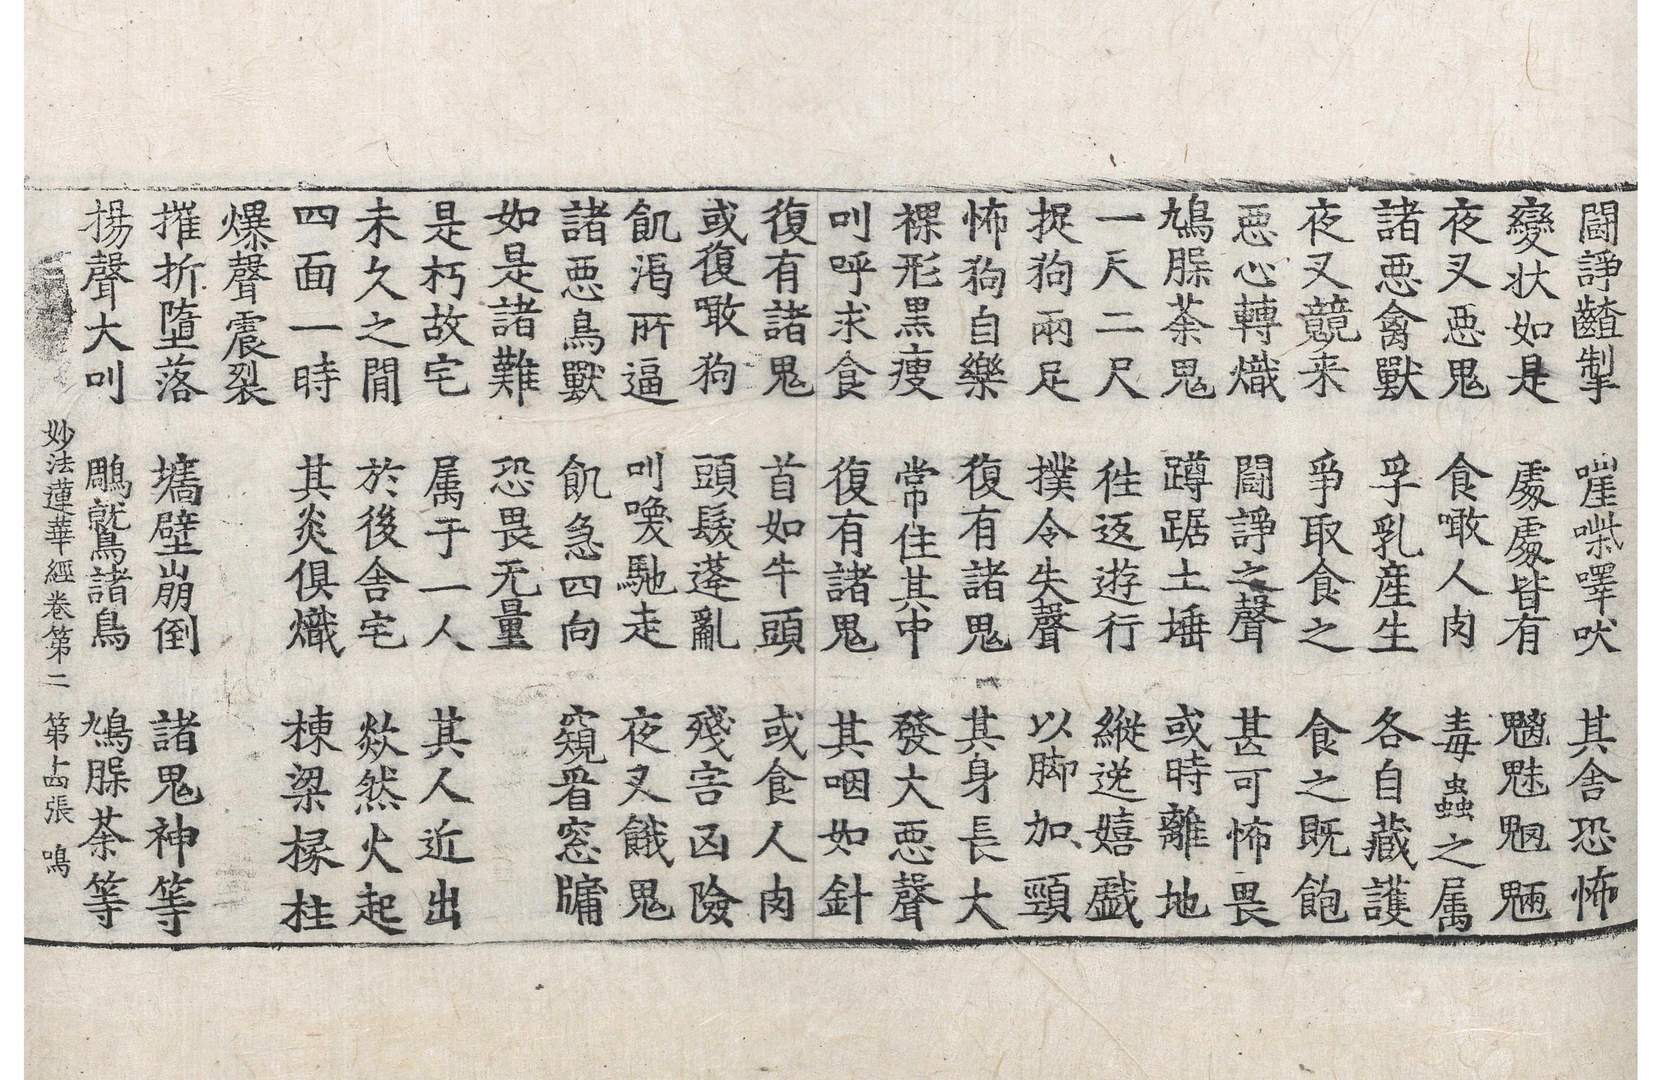 鬪諍齷掣 嘊喍嘷吠 其舍恐怖
變状如是 處處皆有 魑魅魍魎
夜叉惡鬼 食噉人肉 毒蟲之属
諸惡禽獸 孚乳産生 各自藏護
夜叉競来 爭取食之 食之既飽
惡心轉熾 鬪諍之聲 甚可怖畏
鳩脵荼鬼 蹲踞土埵 或時離地
一尺二尺 往返遊行 縱逸嬉戯
捉狗兩足 撲令失聲 以脚加頸
怖狗自樂 復有諸鬼 其身長大
裸形黒瘦 常住其中 發大惡聲
叫呼求食 復有諸鬼 其咽如針
復有諸鬼 首如牛頭 或食人肉
或復噉狗 頭髮蓬亂 殘害凶險
飢渴所逼 叫喚馳走 夜叉餓鬼
諸惡鳥獸 飢急四向 窺看窓牖
如是諸難 恐畏无量
是朽故宅 属于一人 其人近出
未久之間 於後舍宅 欻然火起
四面一時 其炎俱熾 棟梁椽柱
爆聲震裂
摧折墮落 墻壁崩倒 諸鬼神等
揚聲大叫 鵰鷲諸鳥 鳩脵荼等
妙法蓮華經卷第二 第十四張 鳴